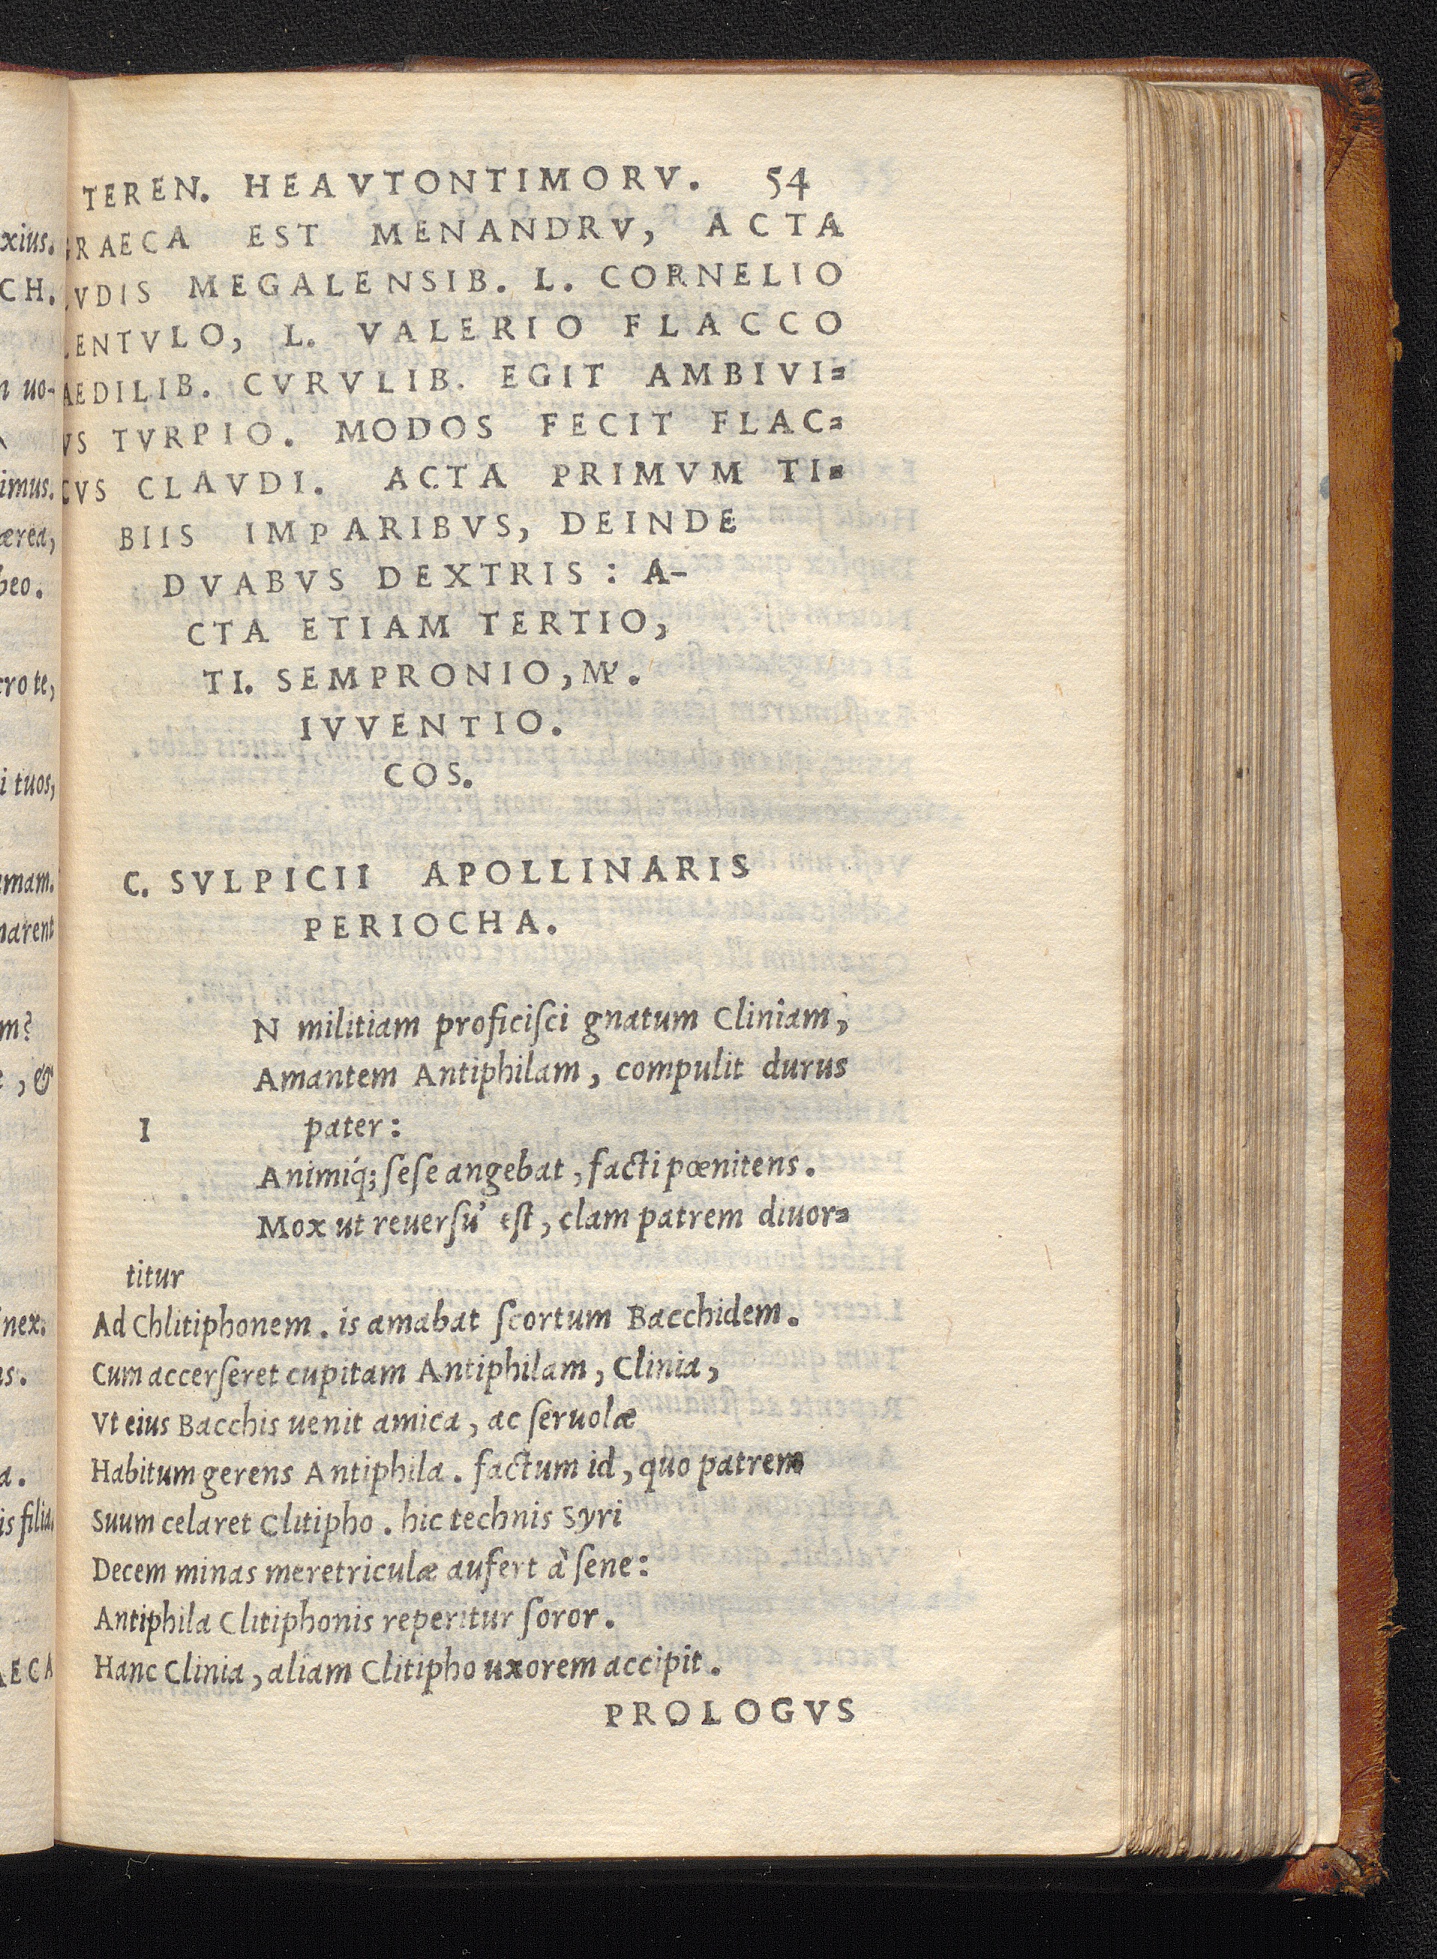 TEREN. HEAVTONTIMORV. 54
GRAECA EST MENANDRV, ACTA
LVDIS MEGALENSIB. L. CORNELIO
LENTVLO, L. VALERIO FLACCO
AEDILIB. CVRVLIB. EGIT AMBIVI=
VS TVRPIO. MODOS FECIT FLAC=
CVS CLAVDI. ACTA PRIMVM TI=
BIIS IMPARIBVS, DEINDE
DVABVS DEXTRIS : A-
CTA ETIAM TERTIO,
TI. SEMPRONIO,
IVVENTIO.
COS.
C. SVLPICII APOLLINARIS
PERIOCHA.
N militiam proficiſci gnatum Cliniam,
Amantem Antiphilam, compulit durus
I pater :
Animiq́; ſeſe angebat, facti pœnitens.
Mox ut reuerſu' eſt, clam patrem diuor=
titur
Ad Chlitiphonem. is amabat ſcortum Bacchidem.
Cum accerſeret cupitam Antiphilam, Clinia,
Vt eius Bacchis uenit amica, ac ſeruolæ
Habitum gerens Antiphila. factum id, quo patrem
Suum celaret Clitipho. hic technis Syri
Decem minas meretriculæ aufert à ſene :
Antiphila Clitiphonis reperitur ſoror.
Hanc Clinia, aliam Clitipho uxorem accipit.
PROLOGVS
xius.
CH.
uo-
imus.
ærea,
beo.
cro te,
i tuos,
mam.
narent
m?
, &
nex.
as.
a.
is filia.
AECA